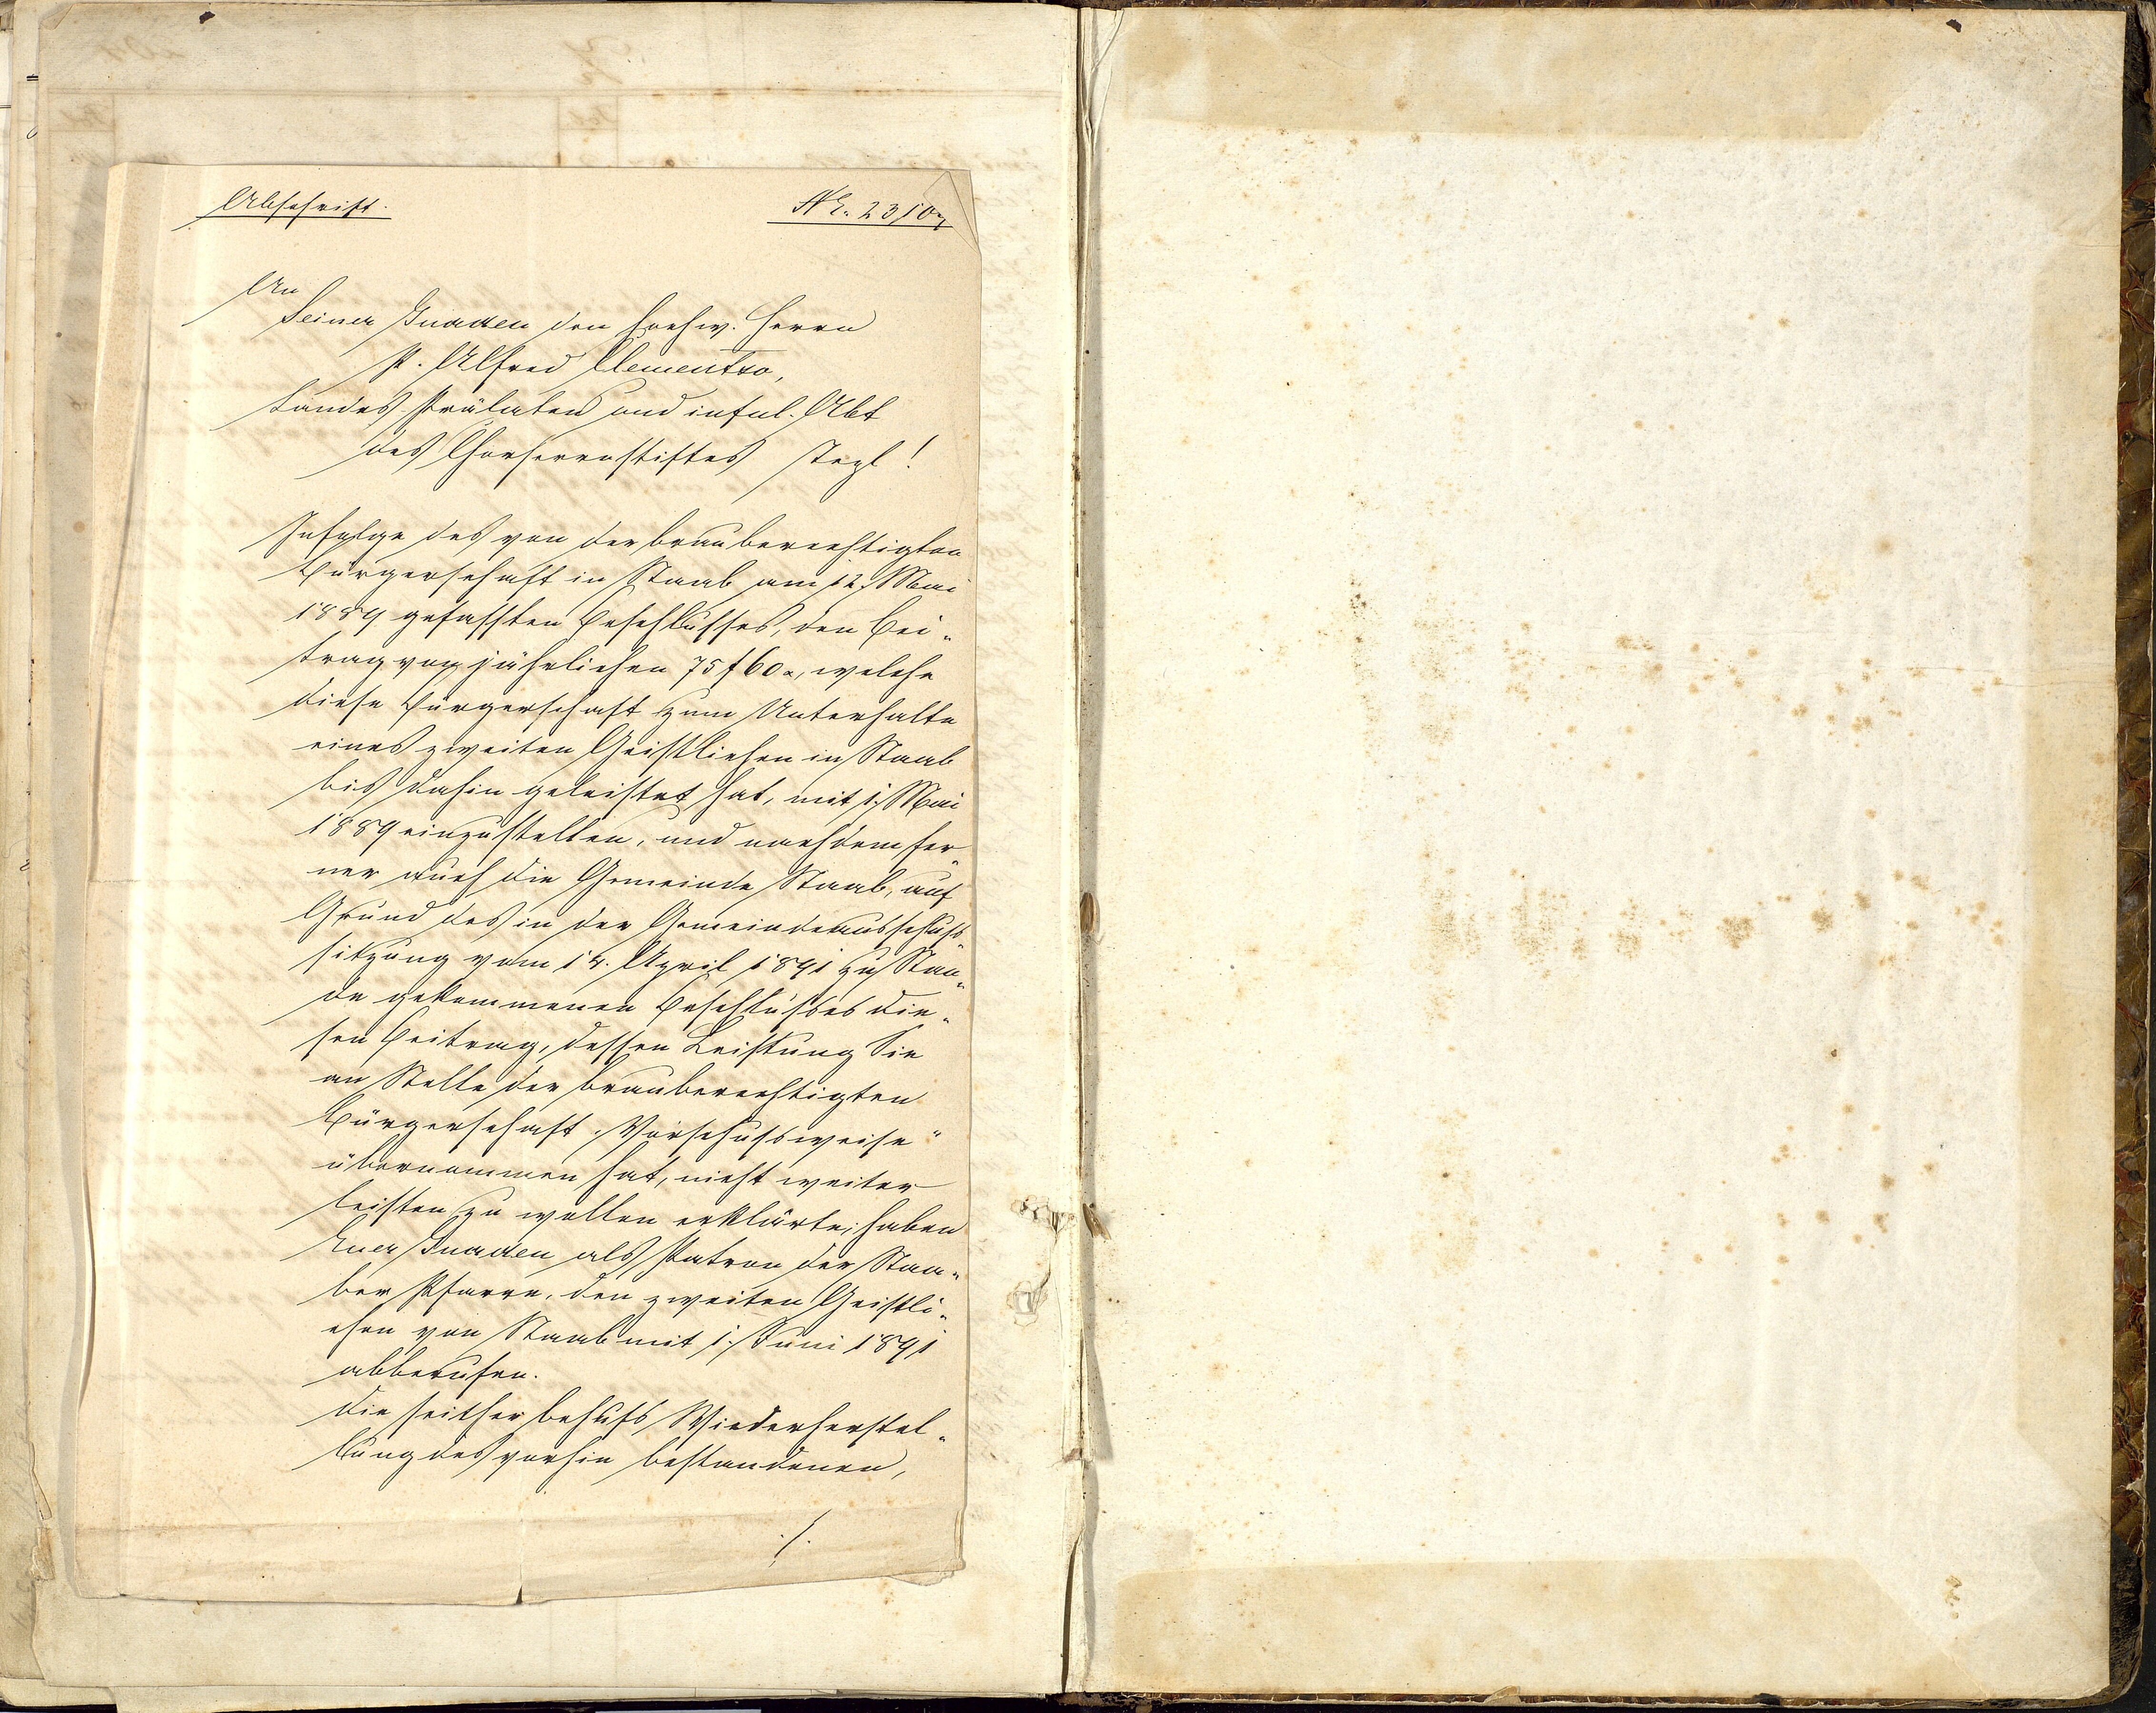 Abschrift.
N. E. 23107
An
Seiner Gnaden den hochw. Herrn
P. Alfred Clementso,
Landes Prälaten und inful. Abt
des Chorherrnstiftes Tepl!
Infolge des von der brauberechtigten
Bürgerschaft in Staab am 12. Mai
1889 gefassten Beschlusses, den Bei-
trag von jährlichen 75 f 60 x, welche
diese Bürgerschaft zum Unterhalte
eines zweiten Geistlichen in Staab
bis dahin geleistet hat, mit 1. Mai
1889 einzustellen, und nachdem fer-
ner auch die Gemeinde Staab, auf
Grund des in der Gemeindeausschuß-
sitzung vom 14. April 1891 zu Stan-
de gekommenen Beschlusses die-
sen Beitrag, dessen Leistung Sie
an Stelle der brauberechtigten
Bürgerschaft "Vorschußweise"
übernommen hat, nicht weiter
leisten zu wollen erklärte; haben
Euer Gnaden als Patron der Staa-
ber Pfarre, den zweiten Geistli-
chen von Staab mit 1. Juni 1891
abberufen.
Die seither behufs Wiederherstel-
lung des vorhin bestandenen,
./.